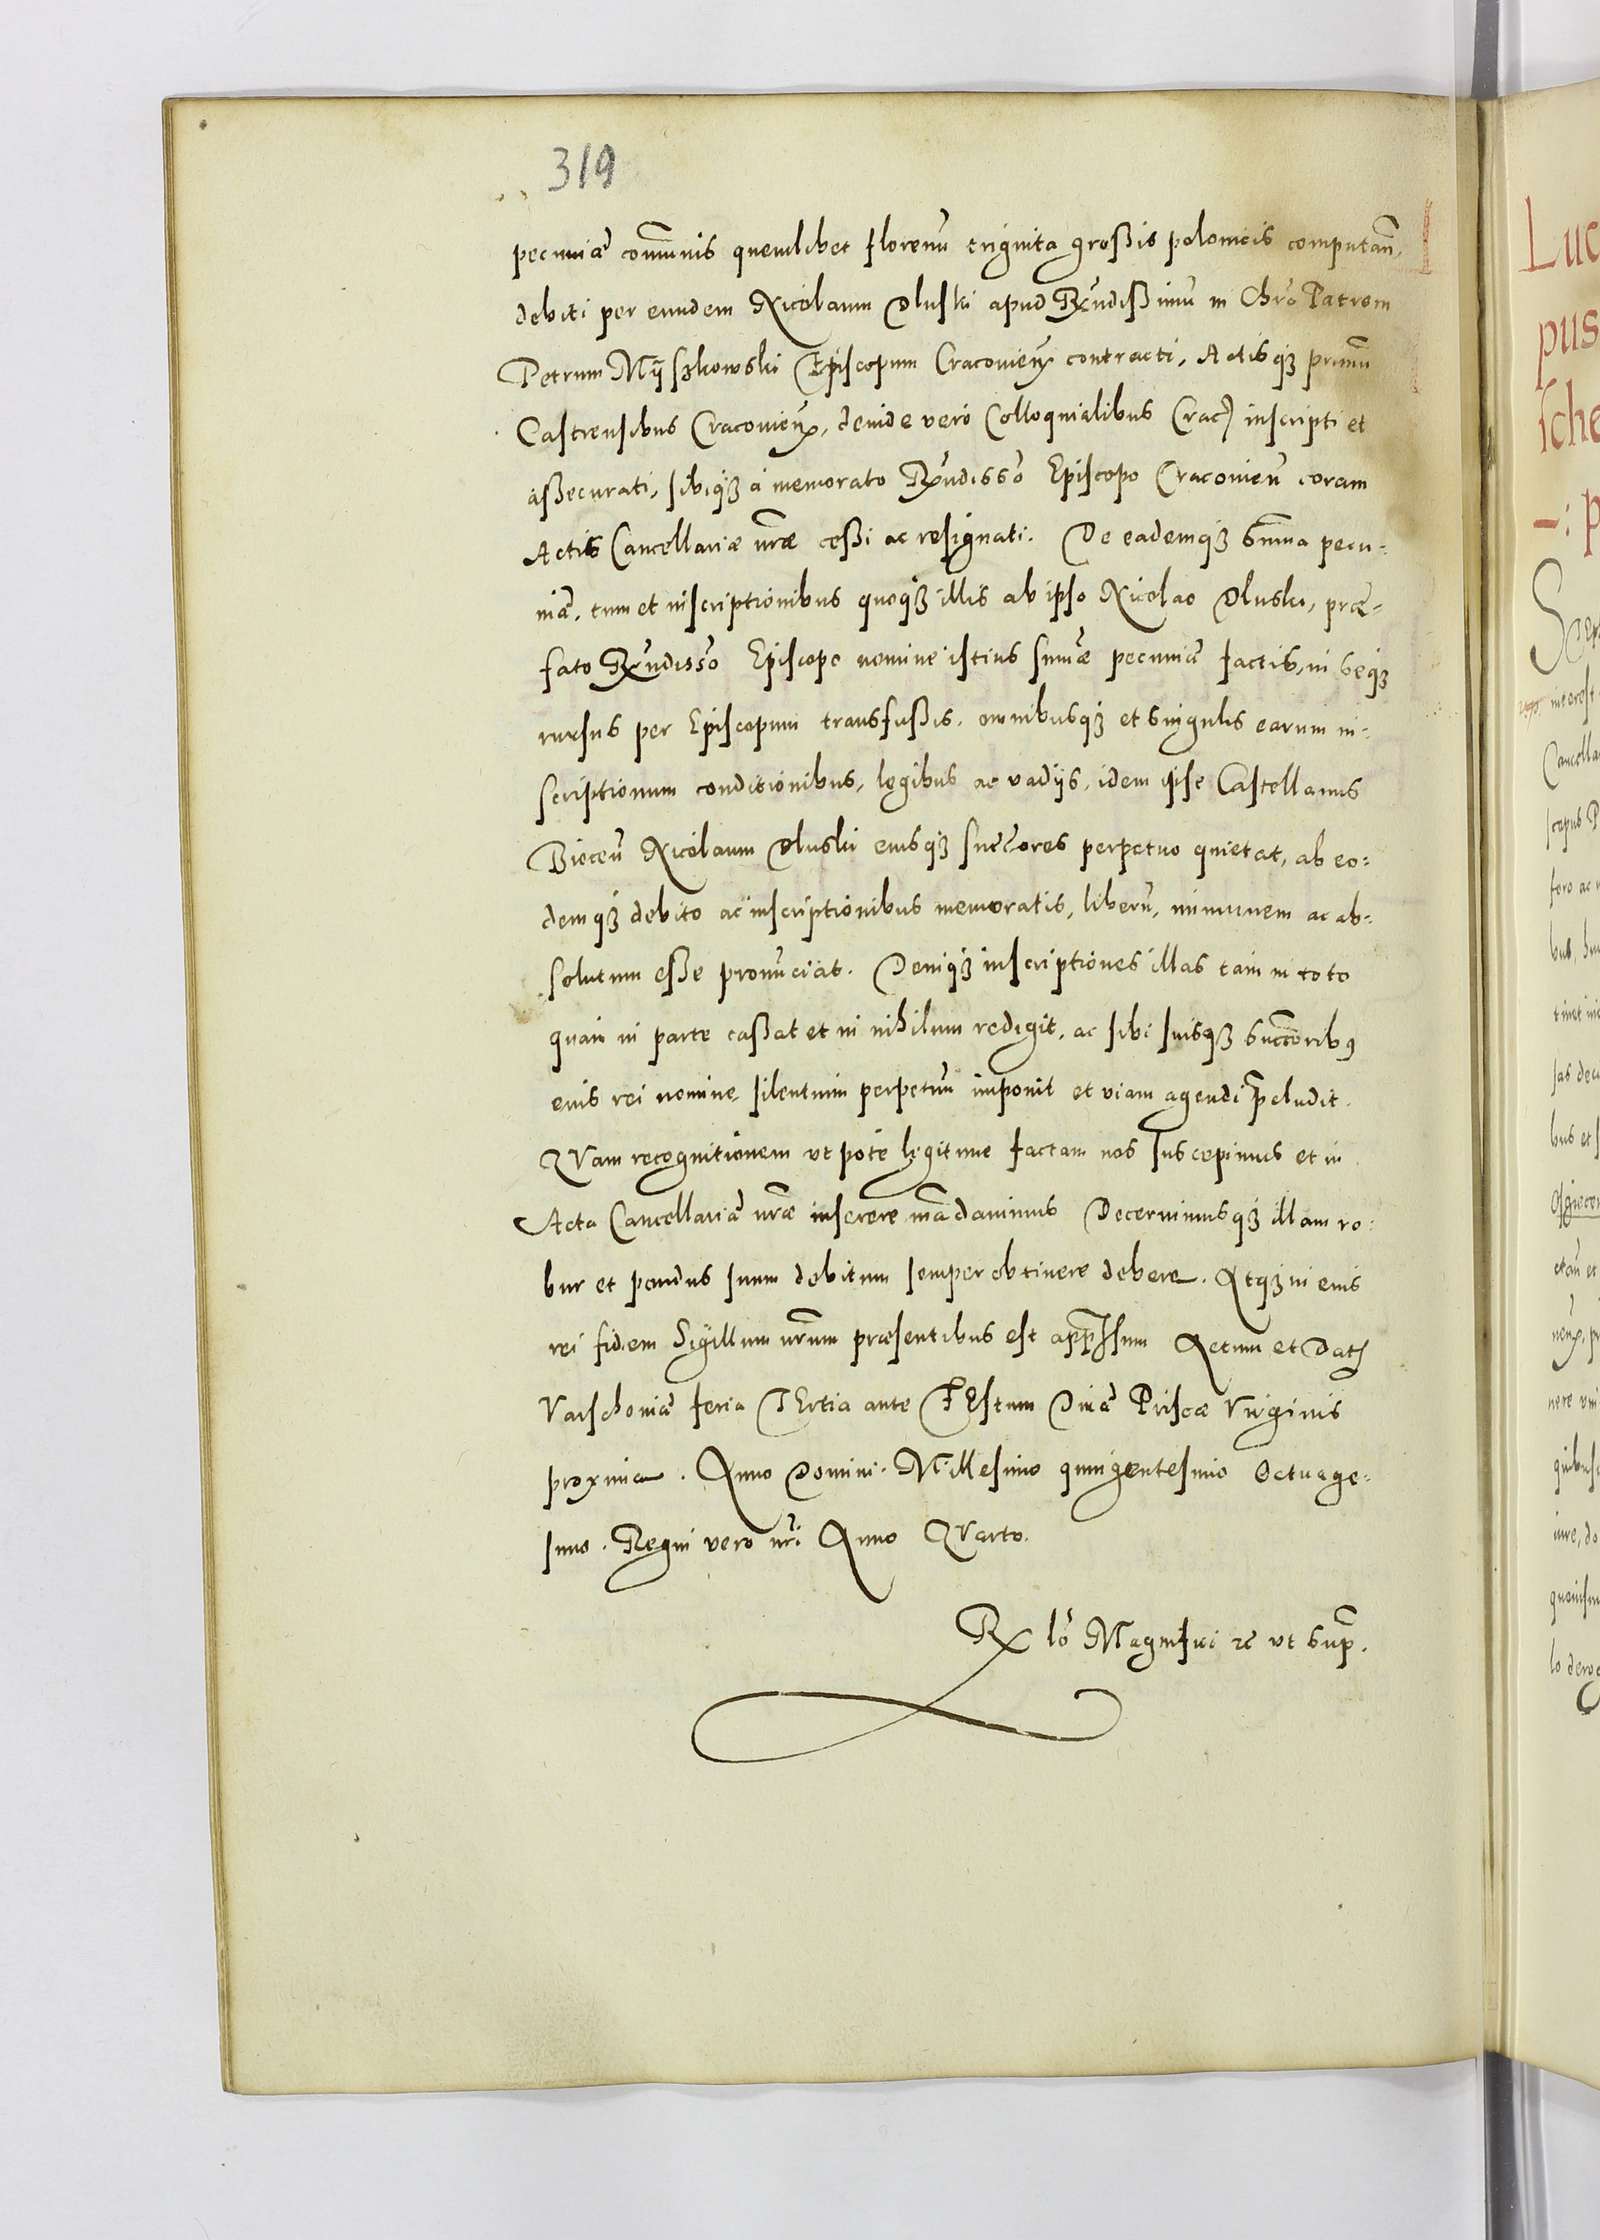 319
pecuniæ com̄unis quemlibet florenū triginta großis polonicis computan̄,
debiti per eundem Nicolaum Dluski apud Rn̄dißimū in Chrō Patrem
Petrum Mÿszkowski Episcopum Cracovieñ contracti, Actisqʒ primū
Castrensibus Cracovieñ, deinde vero Colloquialibus Crac) inscripti et
aßecurati, sibiqʒ a memorato Rn̄disso Episcopo Cracovieñ coram
Actis Cancellariæ nr̄æ ceßi ac resignati. De eademqʒ sum̄a pecu-
niæ, tum et inscriptionibus quoqʒ illis ab ipso Nicolao Dluski, præ-
fato Rn̄disso Episcopo nomine istius sum̄æ pecuniæ factis, in seqʒ
rursus per Episcopum transfußis, omnibusqʒ et singulis earum in-
scriptionum conditionibus, legibus ac vadijs, idem ipse Castellanus
Bieceñ Nicolaum Dluski eiusqʒ succ̄ores perpetuo quietat, ab eo-
demqʒ debito ac inscriptionibus memoratis, liberū, immunem ac ab-
solutum eße pronūciat. Deniqʒ inscriptiones illas tam in toto
quam in parte caßat et in nihilum redigit, ac sibi suisqʒ succ̄oribꝰ
eius rei nomine silentium perpetuū imponit et viam agendi p̄cludit.
QVam recognitionem ut pote legitime factam nos suscepimus et in
Acta Cancellariæ nr̄æ inserere mādavimus Decernimusqʒ illam ro-
bur et pondus suum debitum semper obtinere debere. Atqʒ in eius
rei fidem Sigillum nr̄um præsentibus est app̄ssum Actum et Datʒ
Varschoviæ feria TErtia ante FEstum Divæ Priscæ Virginis
proxima. Anno Domini. Millesimo quingentesimo Octuage-
simo. Regni vero nr̄i Anno QVarto.
Rx lō Magnifici ꝛc ut sup̄.